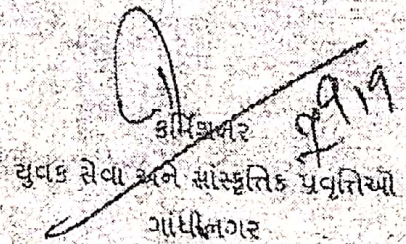 કમિશનર
યુવક સેવા અને સાંસ્કૃતિક પ્રવૃત્તિઓ
ગાંધીનગર